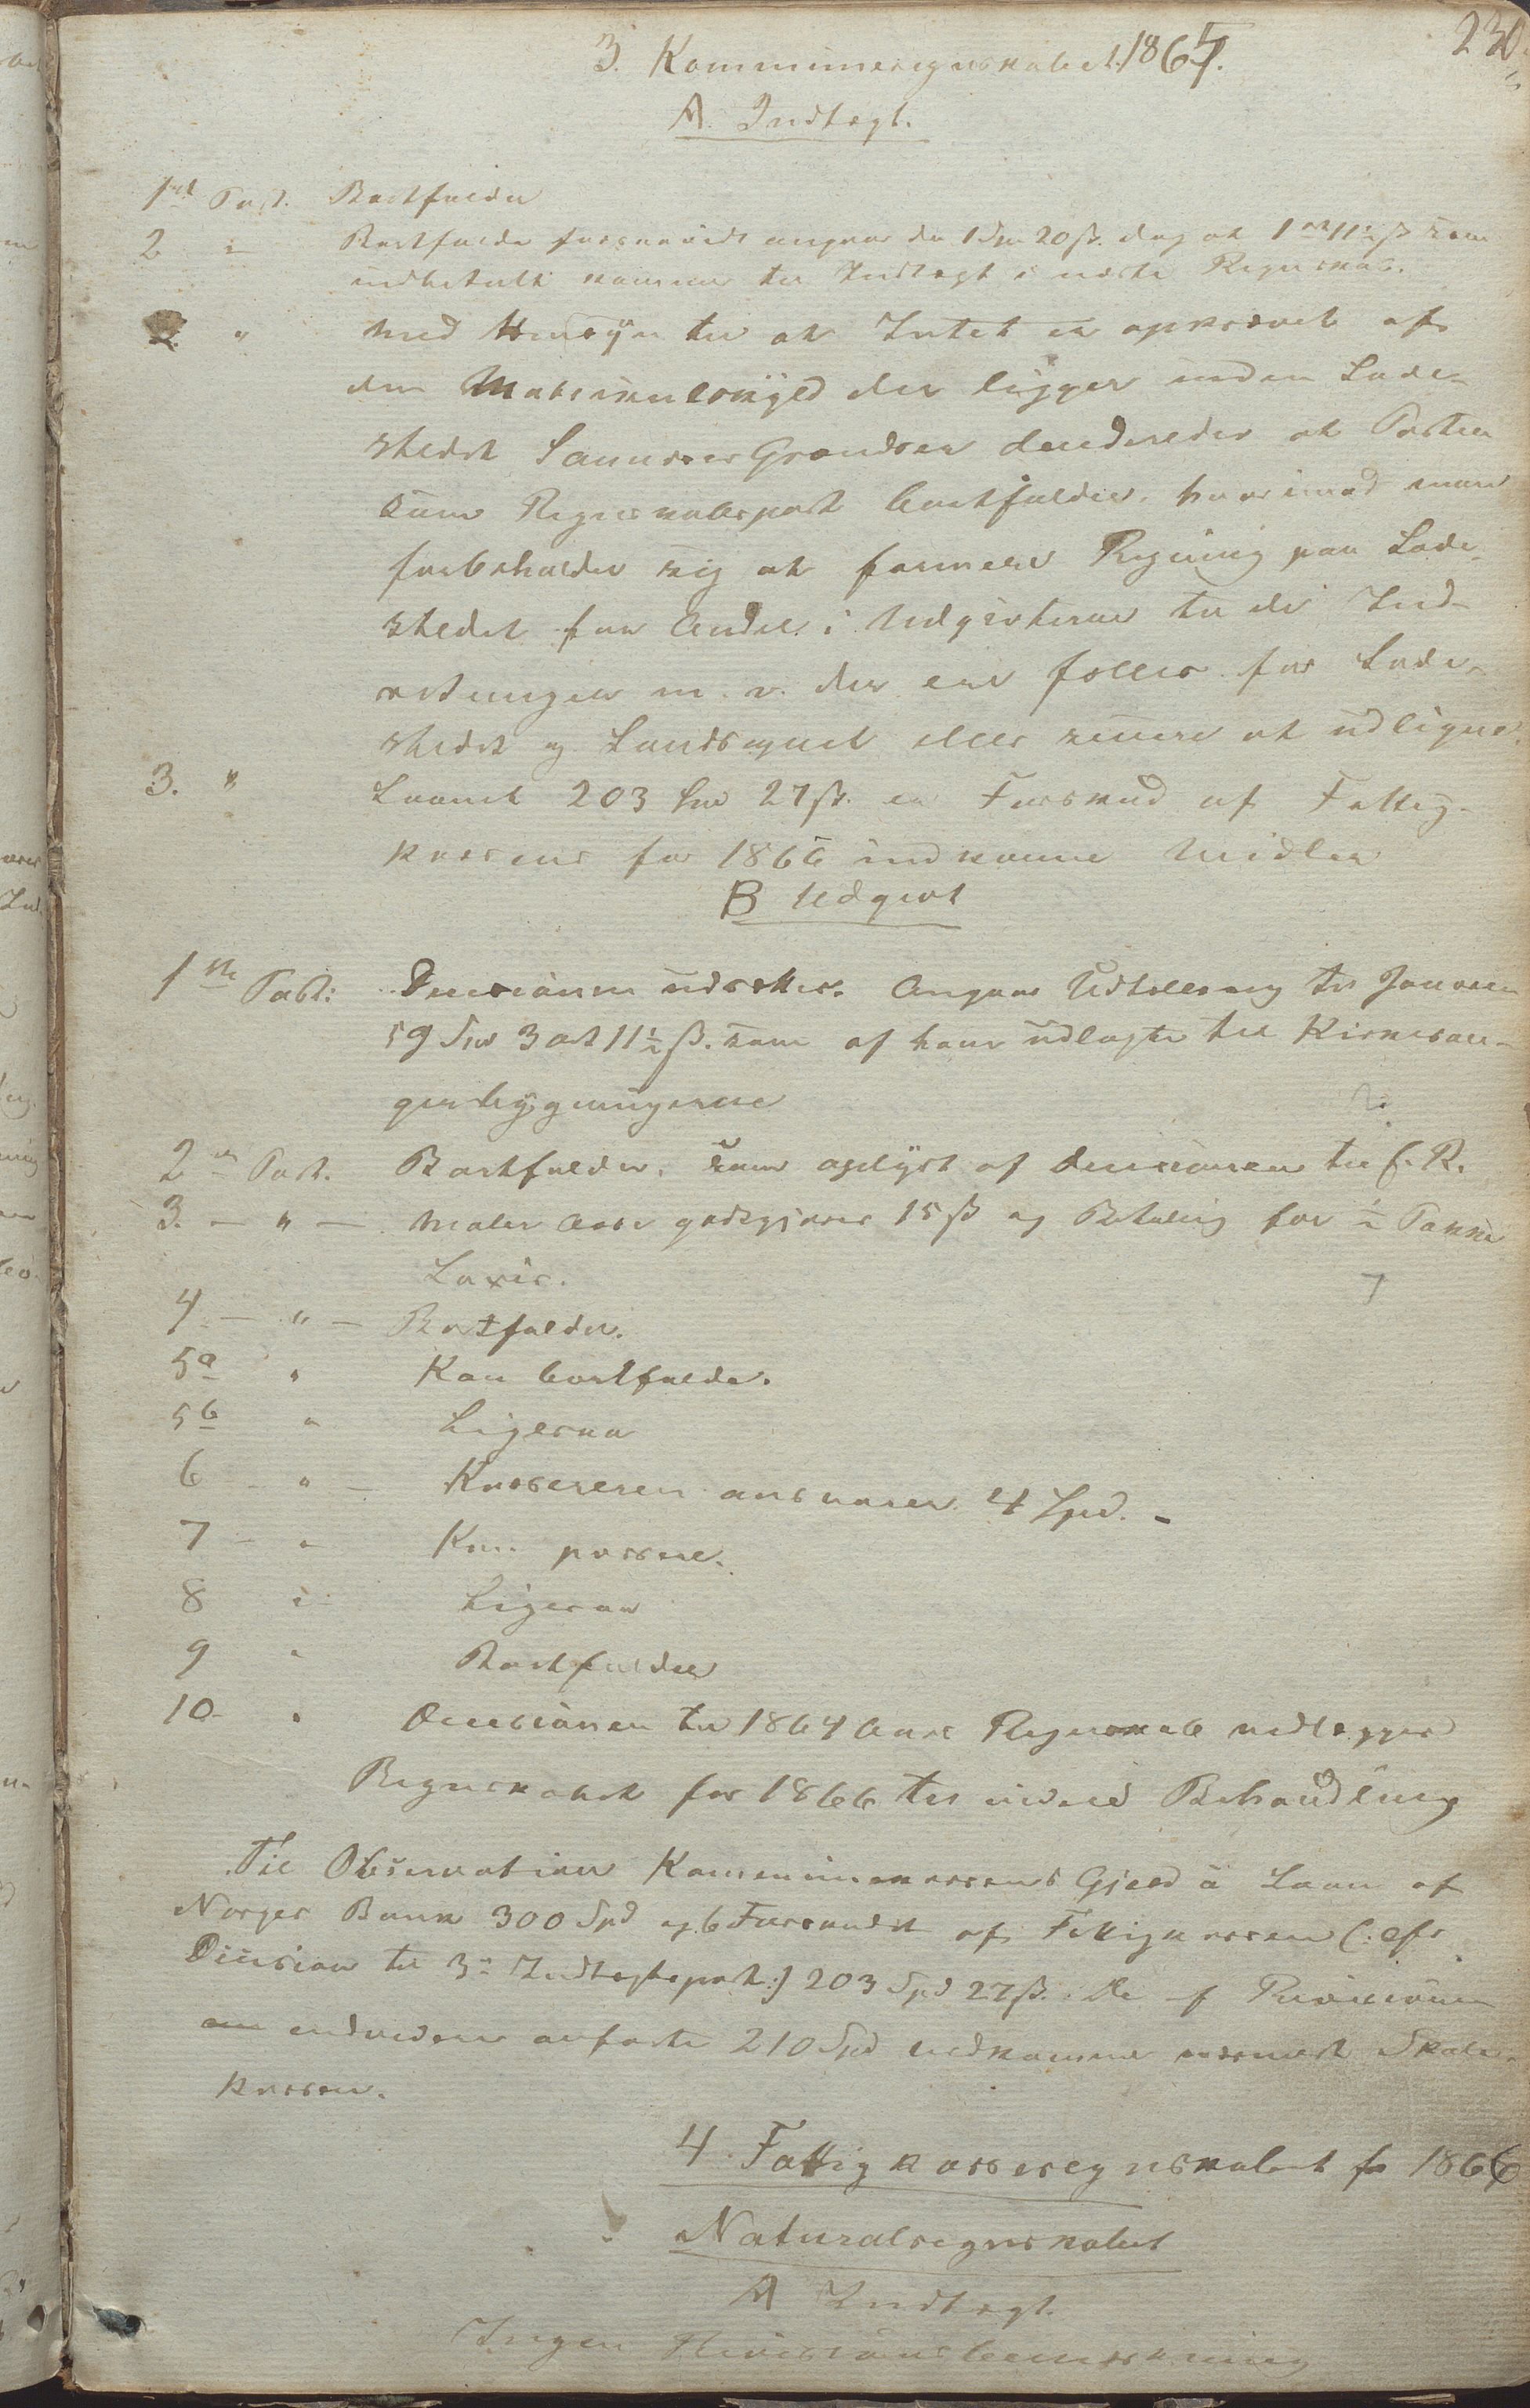 230
3. Kommuneregnskabet 1865.
A. Indtægt.
1ste Post. Bortfalder
2 " Bortfalder forsaavidt angaar de 1 Spd 20 ß. dog at 1 ort 11½ ß som
indbetalt kommer til Indtægt i næste Regnskab.
2. " Med Hensyn til at Intet er opkrævet af
den Matrikulskyld der ligger inden Lade-
stedet Sannesær Grændser decideredes at Posten
som Regnskabspost bortfalder, hvorimod man
forbeholder sig at formere Regning paa Lade-
stedet for Andel i Udgivterne til de Ind-
retninger m. v. der ere fælles for Lade-
stedet og Landsognet eller senere at udligne.
3. " Laanet 203 Spd 27 ß. er Forskud af Fattig-
kassens for 1866 indkomne Midler
B Udgivt
1ste Post: Decisionen udsættes. Angaar Udtælling til Jansen
59 Spd 3 ort 11½ ß. som af ham udlagte til Kirkesan-
gerbygningerne
2den Post. Bortfalder, som oplyst af Decisionen til f. R.
3. — " — Maler Aase godtgjører 15 ß og Betaling for ½ Potte
Laxis.
4 — " — Bortfalder.
5a " Kan bortfalde.
5b " Ligesaa
6 — " — Kassereren ansvarer 4 Spd. -
7 — " Kan passere.
8 " Ligesaa
9 " Bortfalder
10 - " Decisionen til 1864 Aars Regnskab vedlægges
Regnskabet for 1866 til videre Behandling
Til Observation Kommunekassens Gjeld a Laan af
Norges Bank 300 Spd og b Forskudt af Fattigkassen (: cfr
Decision til 3die Indtægtspost :) 203 Spd 27 ß. De af Revisionen
endvidere anførte 210 Spd vedkomme Skole-
kassen.
4 Fattigkasseregnskabet for 1866
Naturalregnskabet
A Indtægt.
Ingen Revisionsbemærkning